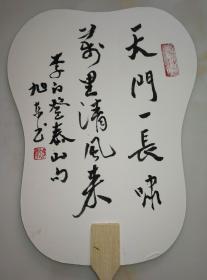 天門一長嘯
萬里清風来
李白登泰山句
旭東书